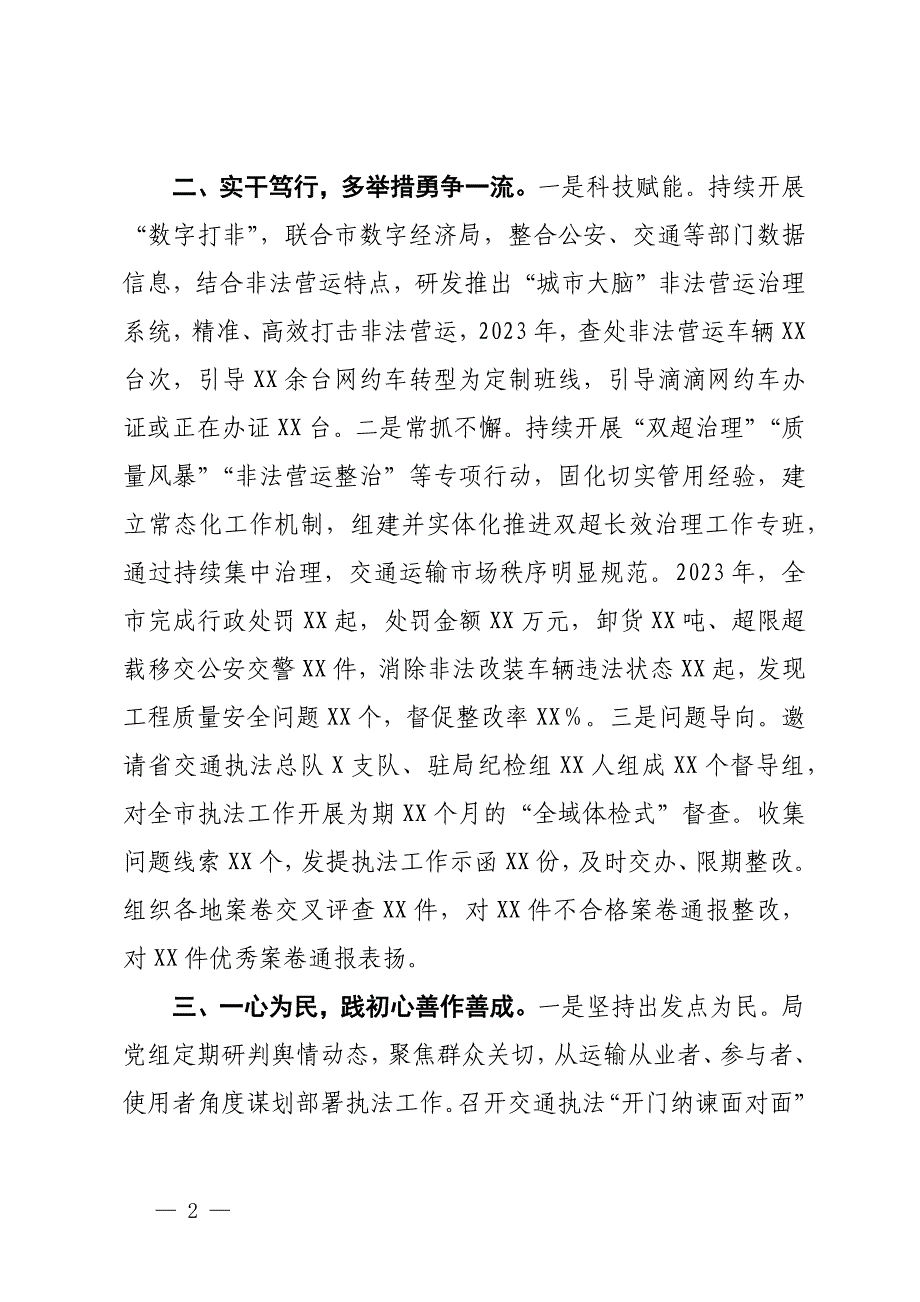 二、实干笃行，多举措勇争一流。一是科技赋能。持续开展
“数字打非”，联合市数字经济局，整合公安、交通等部门数据
信息，结合非法营运特点，研发推出“城市大脑”非法营运治理
系统，精准、高效打击非法营运，2023 年，查处非法营运车辆 XX
台次，引导 XX 余台网约车转型为定制班线，引导滴滴网约车办
证或正在办证 XX 台。二是常抓不懈。持续开展“双超治理”“质
量风暴”“非法营运整治”等专项行动，固化切实管用经验，建
立常态化工作机制，组建并实体化推进双超长效治理工作专班，
通过持续集中治理，交通运输市场秩序明显规范。2023 年，全
市完成行政处罚 XX 起，处罚金额 XX 万元，卸货 XX 吨、超限超
载移交公安交警 XX 件，消除非法改装车辆违法状态 XX 起，发现
工程质量安全问题 XX 个，督促整改率 XX%。三是问题导向。邀
请省交通执法总队 X 支队、驻局纪检组 XX 人组成 XX 个督导组，
对全市执法工作开展为期 XX 个月的“全域体检式”督查。收集
问题线索 XX 个，发提执法工作示函 XX 份，及时交办、限期整改。
组织各地案卷交叉评查 XX 件，对 XX 件不合格案卷通报整改，
对 XX 件优秀案卷通报表扬。
三、一心为民，践初心善作善成。一是坚持出发点为民。局
党组定期研判舆情动态，聚焦群众关切，从运输从业者、参与者、
使用者角度谋划部署执法工作。召开交通执法“开门纳谏面对面”
— 2 —